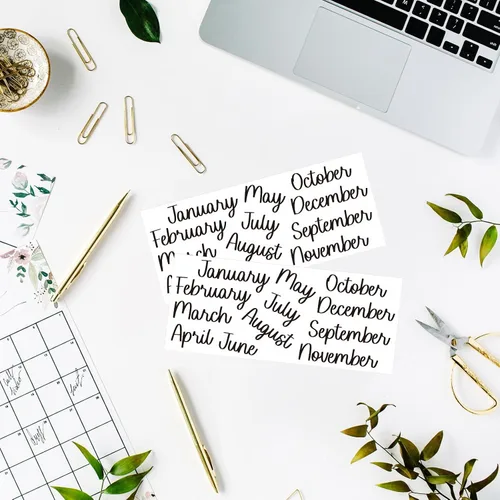 January May October
February July December
March August September
November
January May October
February July December
March August September
April June November